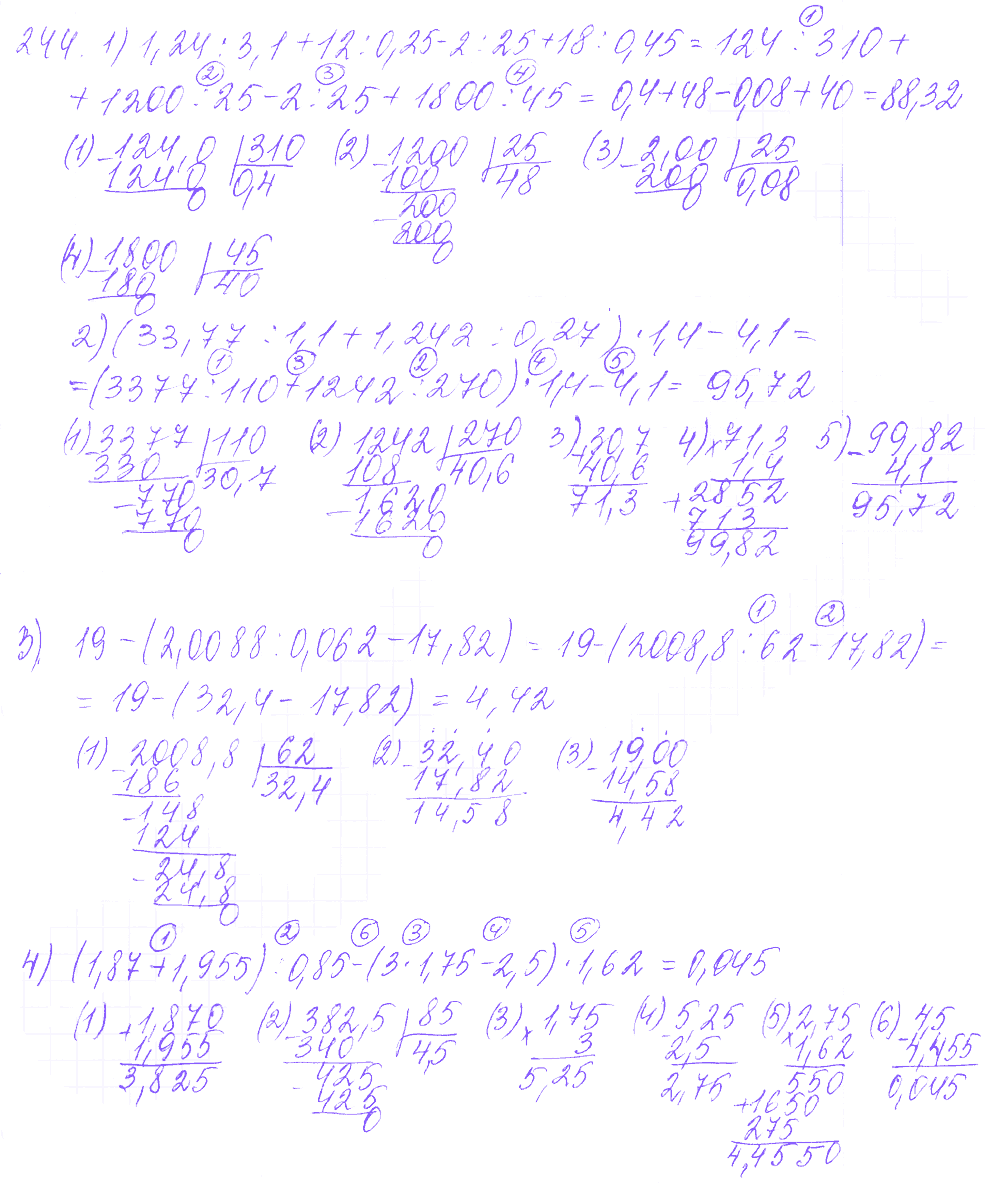 244. 1) 1,24 : 3,1 + 12 : 0,25 - 2 : 25 + 18 : 0,45 = 124 :① 310 +
+ 1200 :② 25 - 2 :③ 25 + 1800 :④ 45 = 0,4 + 48 - 0,08 + 40 = 88,32
(1) -124,0 | 310 (2) -1200 | 25 (3) -2,00 | 25
1240 | 0,4 100 | 48 200 | 0,08
0 -200 0
200
0
(4) -1800 | 45
180 | 40
0
2) (33,77 : 1,1 + 1,242 : 0,27) · 1,4 - 4,1 =
= (3377 :① 110 +③ 1242 :② 270) ·④ 1,4 -⑤ 4,1 = 95,72
(1) -3377 | 110 (2) 1242 | 270 3) +30,7 4) ×71,3 5) -99,82
330 | 30,7 108 | 40,6 40,6 1,4 4,1
-770 -1620 71,3 +2852 95,72
770 1620 713
0 0 99,82
3) 19 - (2,0088 : 0,062 - 17,82) = 19 - (2008,8 :① 62 -② 17,82) =
= 19 - (32,4 - 17,82) = 4,42
(1) -2008,8 | 62 (2) -32,40 (3) -19,00
186 | 32,4 17,82 14,58
-148 14,58 4,42
124
-24,8
24,8
0
4) (1,87 +① 1,955) :② 0,85 -⑥ (3 ·③ 1,75 -④ 2,5) ·⑤ 1,62 = 0,045
(1) +1,870 (2) -382,5 | 85 (3) ×1,75 (4) -5,25 (5) ×2,75 (6) -45
1,955 340 | 4,5 3 2,5 1,62 4,455
3,825 -425 5,25 2,75 550 0,045
425 +1650
0 275
4,4550